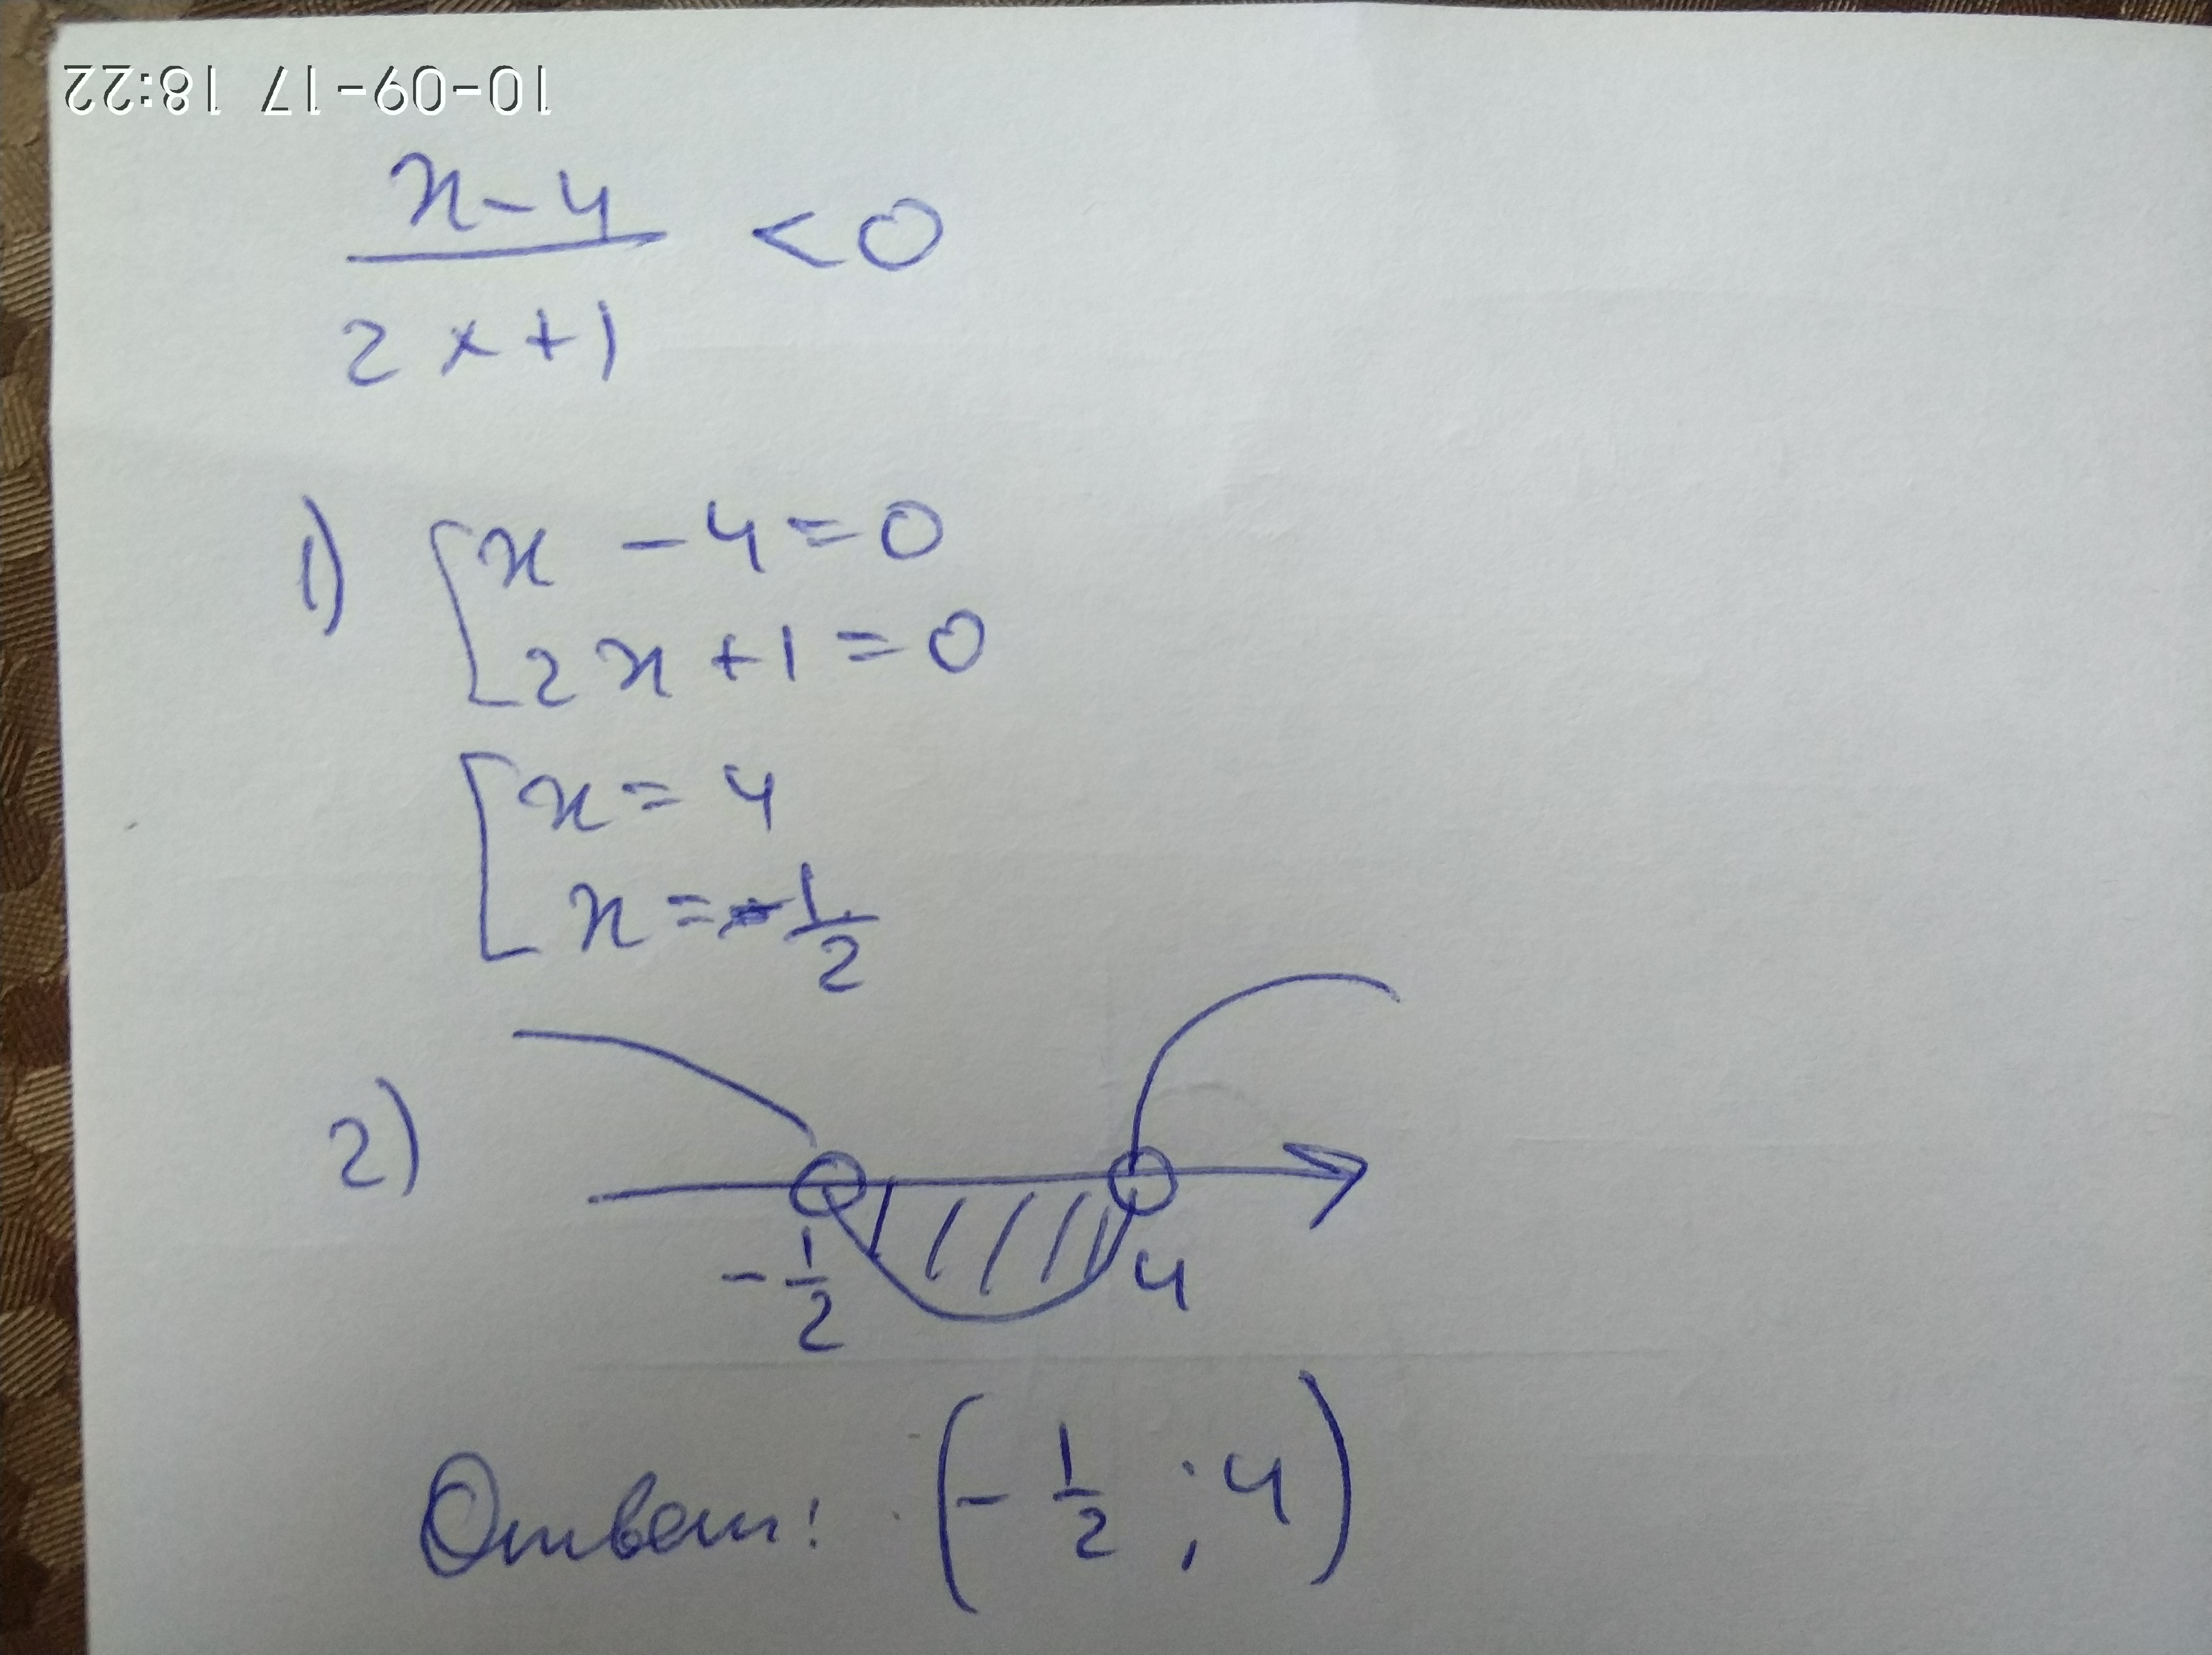 10-09-17 18:22
x-4
2x+1
<0
1) x-4=0
2x+1=0
x=4
x=-1/2
2)
-1/2 4
Ответ: (-1/2; 4)